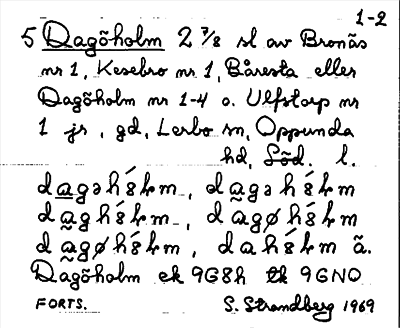 1-2
5 Dagöholm 2 7/8 sl av Bronäs
nr 1, Kesebro nr 1, Båresta eller
Dagöholm nr 1-4 o. Ulfstorp nr
1 js, gd, Lerbo sn, Oppunda
hd, Söd. l.
Dagöholm ek 9G8h tk 9GNO
FORTS. S. Strandberg 1969